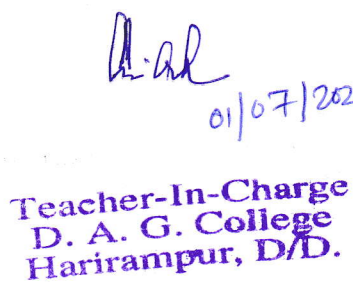 01/07/202
Teacher-In-Charge
D. A. G. College
Harirampur, D/D.